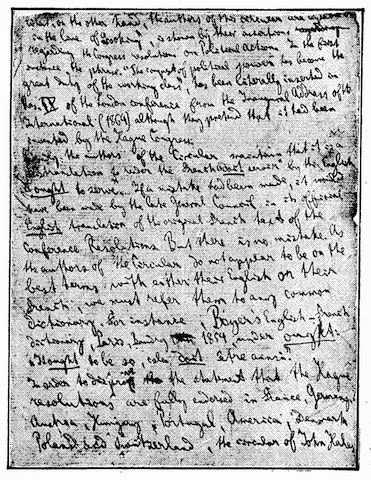 What, on the other hand, the authors of this circular are
in the line of " ", is shown by their assertions
regarding the Congress resolution on Political Action. In the first
instance the phrase. The conquest of political power has become the
great duty of the working class, has been literally inserted in
Res. IX of the London conference from the Inaugural Address of the
International (1864) although they pretend that it had been
invented by the Hague Congress.
the authors of the Circular maintain that it is a
mistranslation to render the French doit servir by the English
ought to serve. If a mistake had been made, it would
have been made by the late General Council in its official
English translation of the original French text of the
Conference Resolutions. But there is no mistake. As
the authors of the Circular do not appear to be on the
best terms with either their English or their
French, we must refer them to any common
dictionary, for instance, Boyer's English-French
dictionary, Paris, Baudry 1854, under ought:
It ought to be so, cela doit être ainsi."
In order to the statement that the Hague
resolutions are fully endorsed in France, Germany,
Austria, Hungary, Portugal, America, Denmark
Poland and Switzerland, the circular of John Hales